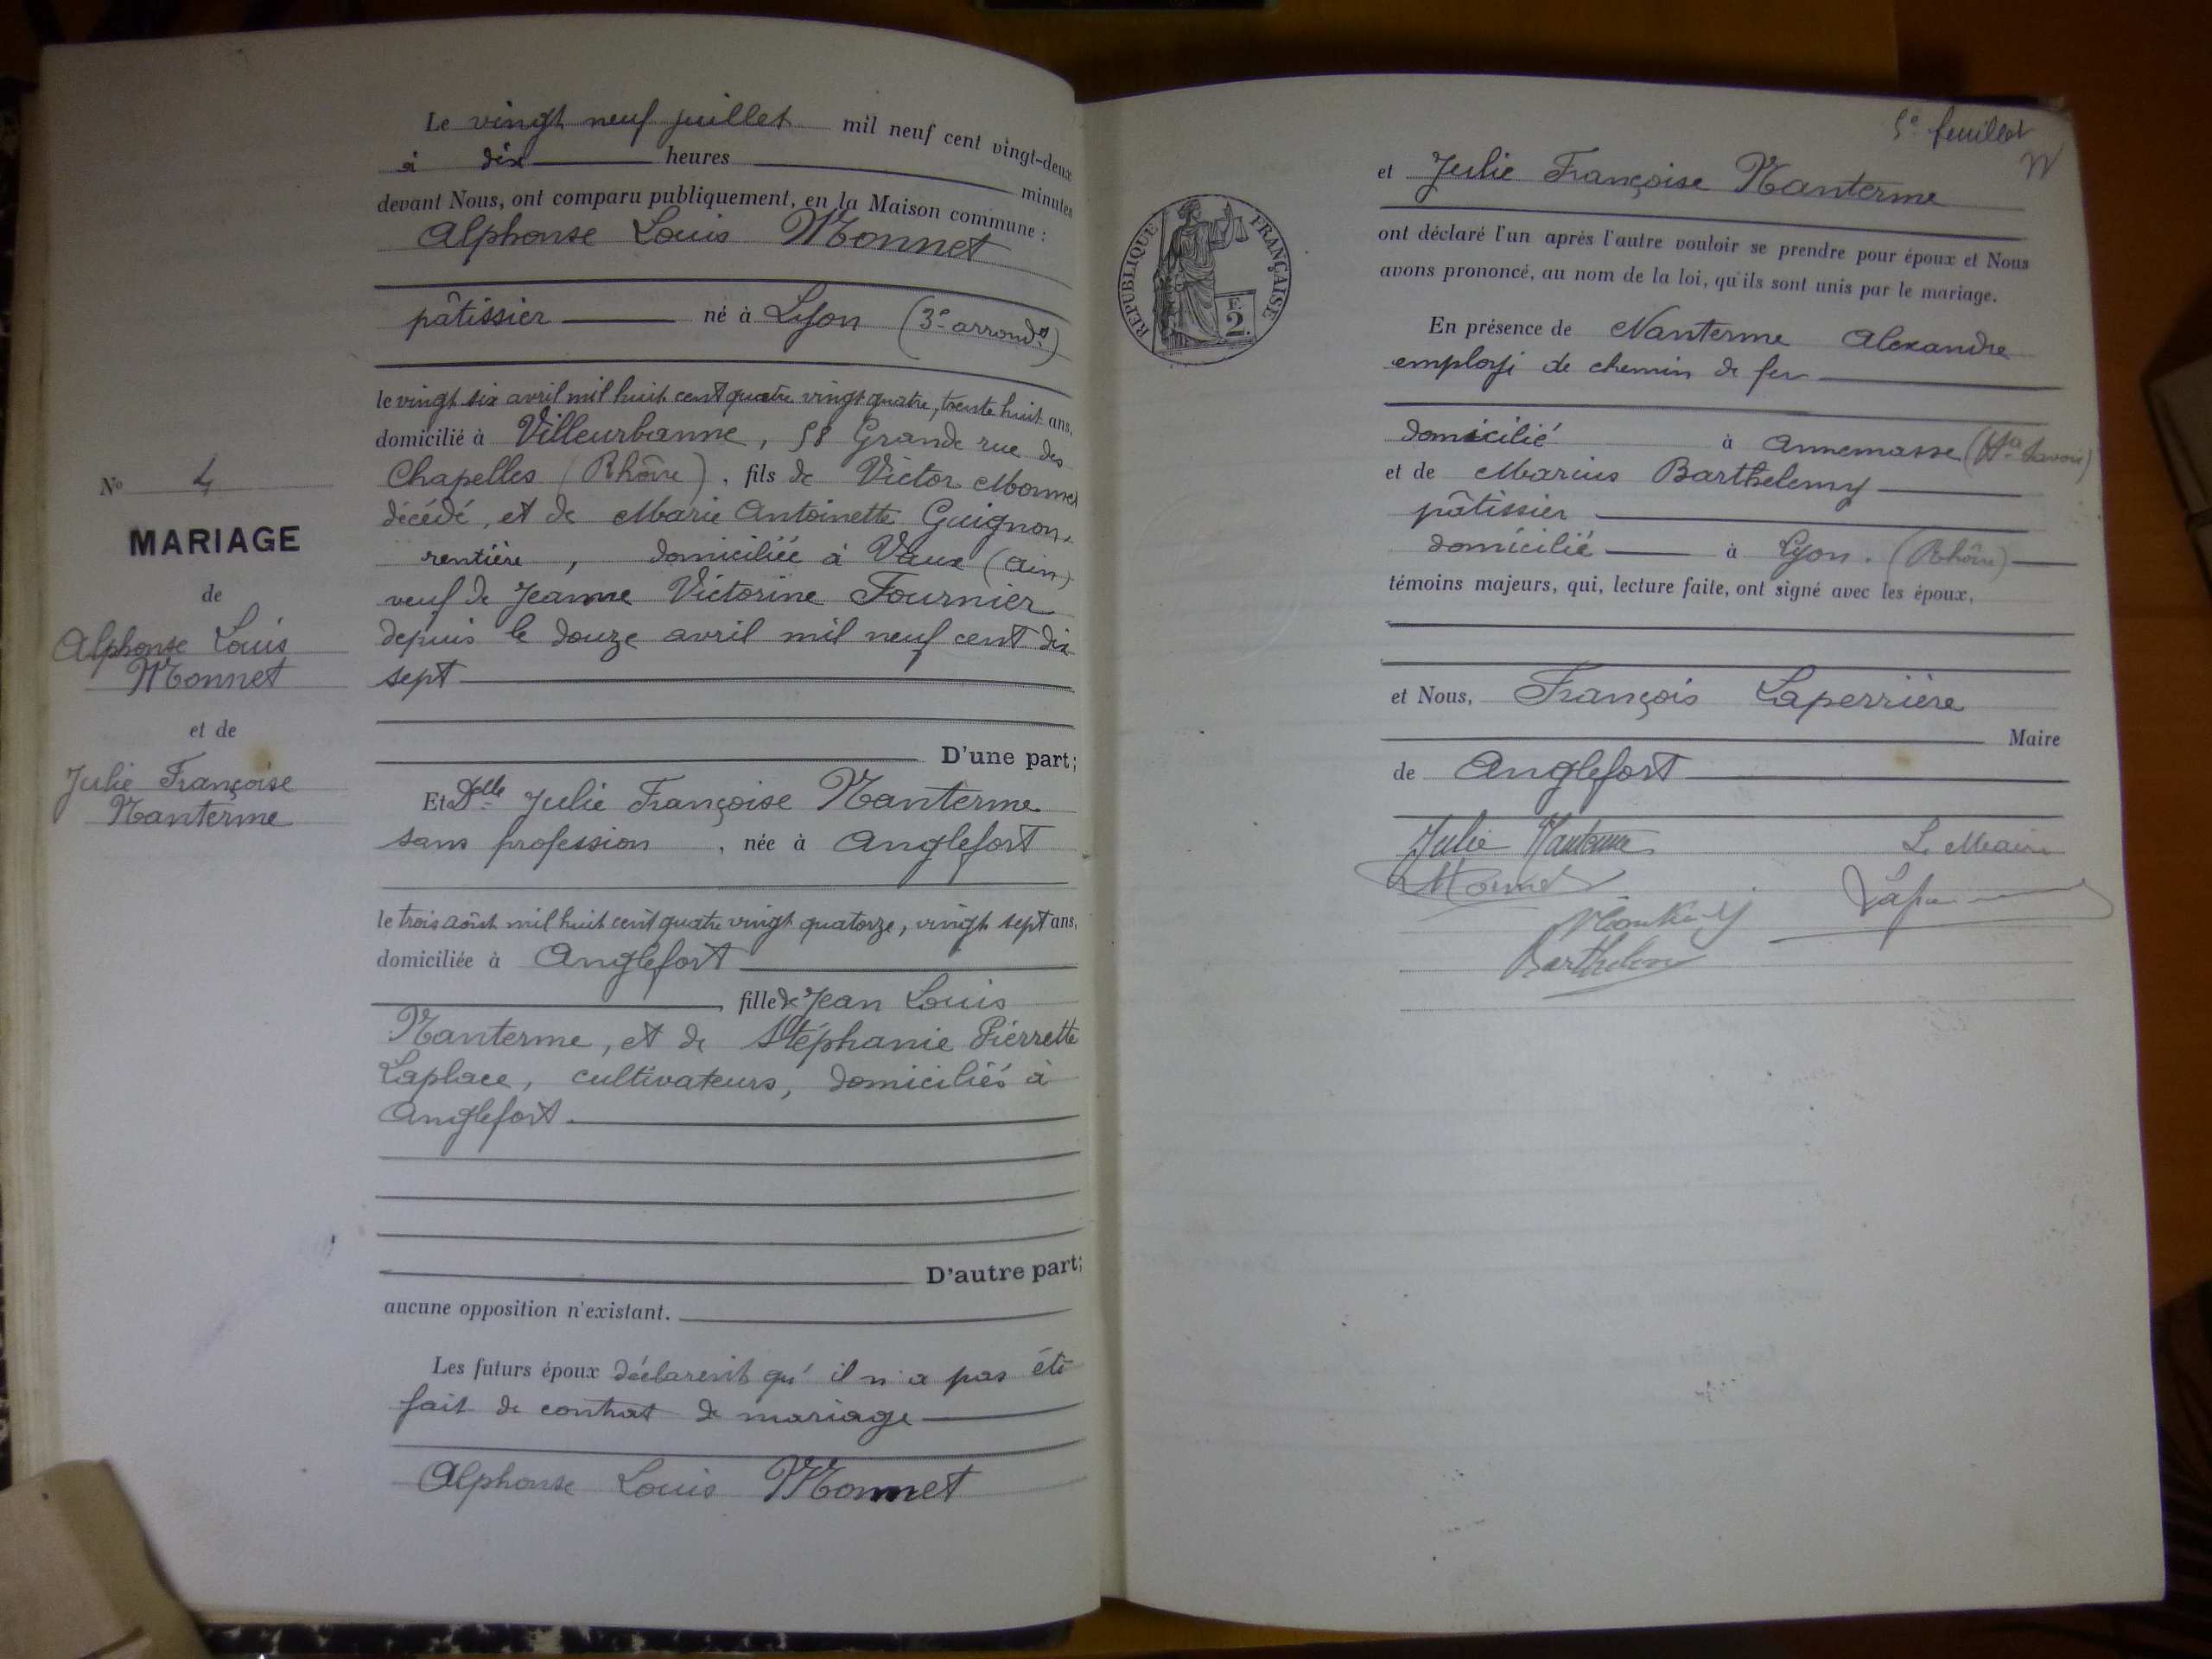 Le vingt neuf juillet mil neuf cent vingt-deux
à dix heures minutes
devant Nous, ont comparu publiquement, en la Maison commune :
Alphonse Louis Monnet
pâtissier né à Lyon (3e arrondt)
le vingt six avril mil huit cent quatre vingt quatre, trente huit ans,
domicilié à Villeurbanne, 58 Grande rue des
Chapelles (Rhône), fils de Victor Monnet
décédé, et de Marie Antoinette Guignon,
rentière, domiciliée à Vaux (Ain)
veuf de Jeanne Victorine Fournier
depuis le douze avril mil neuf cent dix
sept
D'une part;
Et Delle Julie Françoise Nanterme
sans profession, née à Anglefort
le trois août mil huit cent quatre vingt quatorze, vingt sept ans,
domiciliée à Anglefort
fille de Jean Louis
Nanterme, et de Stéphanie Pierrette
Laplace, cultivateurs, domiciliés à
Anglefort
D'autre part;
aucune opposition n'existant.
Les futurs époux déclarent qu'il n'a pas été
fait de contrat de mariage
Alphonse Louis Monnet
No 4
MARIAGE
de
Alphonse Louis
Monnet
et de
Julie Françoise
Nanterme
5e feuillet
RÉPUBLIQUE FRANÇAISE
F.
2.
et Julie Françoise Nanterme
ont déclaré l'un après l'autre vouloir se prendre pour époux et Nous
avons prononcé, au nom de la loi, qu'ils sont unis par le mariage.
En présence de Nanterme Alexandre
employé de chemin de fer
domicilié à Annemasse (Hte Savoie)
et de Marius Barthelemy
pâtissier
domicilié à Lyon. (Rhône)
témoins majeurs, qui, lecture faite, ont signé avec les époux,
et Nous, François Laperrière
Maire
de Anglefort
Julie Nanterme
Le Maire
Monnet
Barthelemy